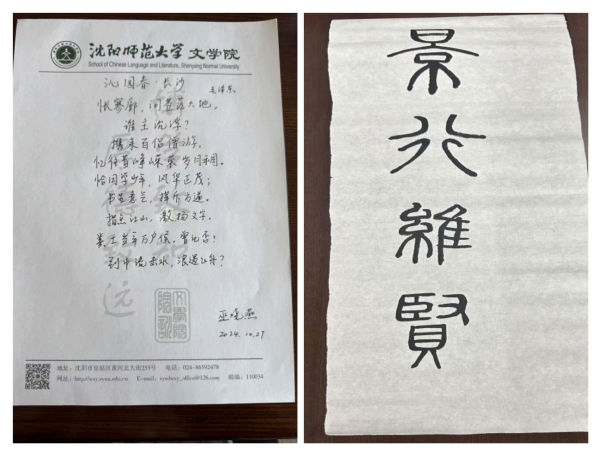 沈阳师范大学 文学院
School of Chinese Language and Literature, Shenyang Normal University
沁园春·长沙
毛泽东
怅寥廓，问苍茫大地，
谁主沉浮？
携来百侣曾游，
忆往昔峥嵘岁月稠。
恰同学少年，风华正茂；
书生意气，挥斥方遒。
指点江山，激扬文字，
粪土当年万户侯。曾记否？
到中流击水，浪遏飞舟？
2024.10.27
地址：沈阳市皇姑区黄河北大街253号 电话：024-86592478
邮编：110034
景行維賢